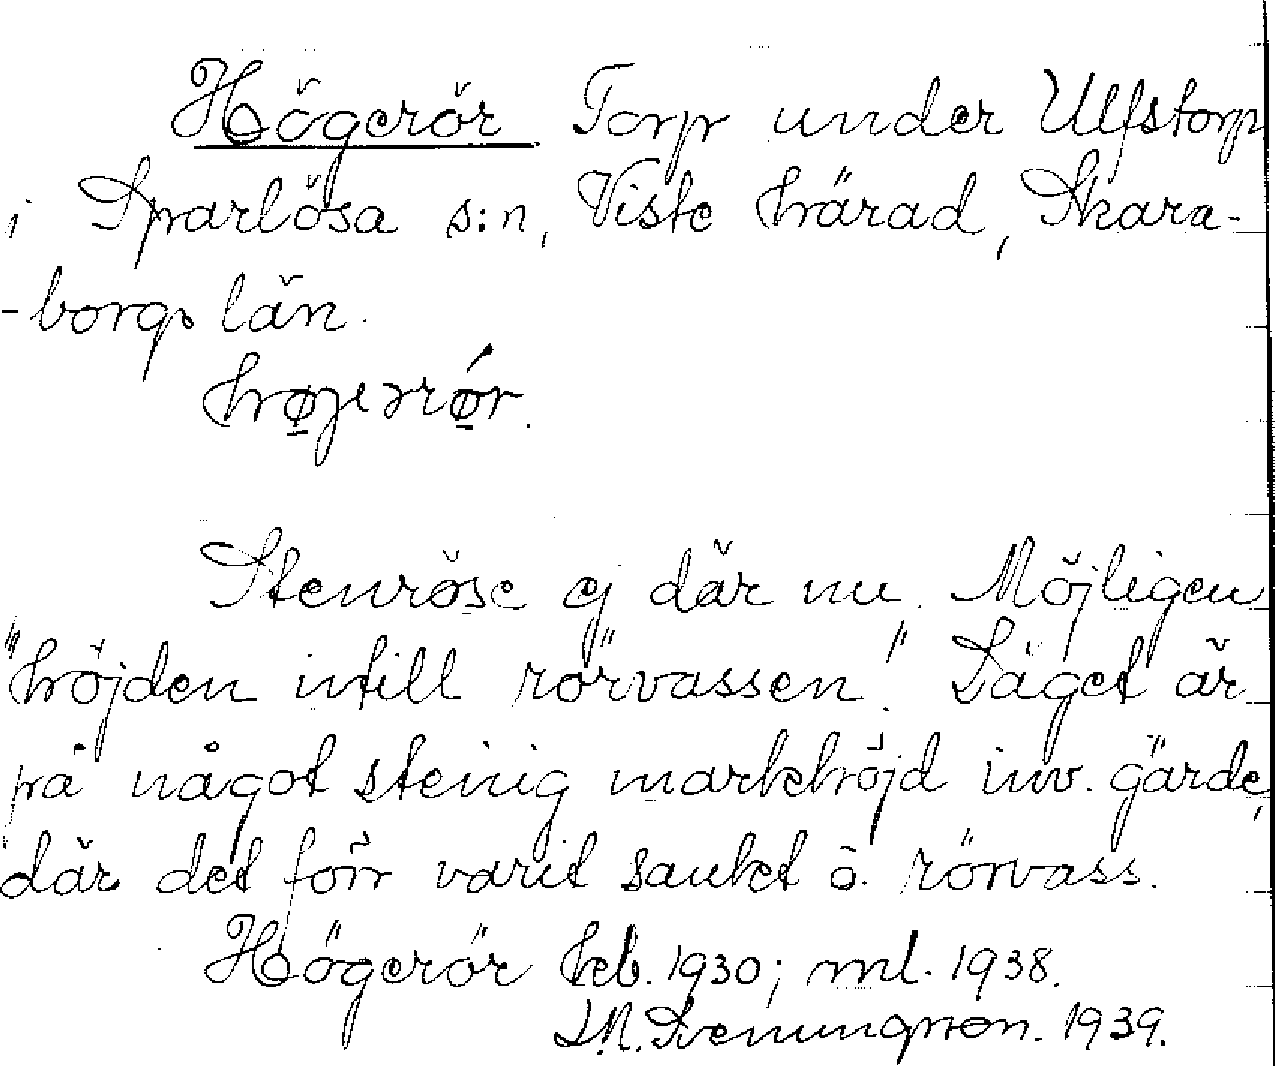 Högerör Torp under Ulfstorp
i Sparlösa s:n, Viste härad, Skara-
-borgs län.
Stenröse ej där nu. Möjligen
"höjden intill rörvassen". Läget är
på något stenig markhöjd inv. gärde,
där det förr varit sankt o. rörvass.
Högerör heb. 1930; ml. 1938.
Svenungsson. 1939.